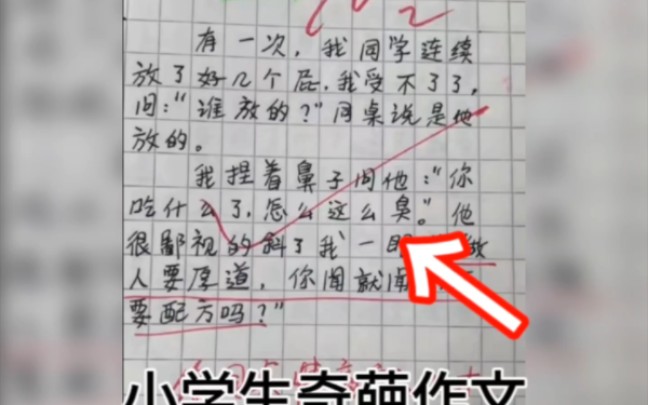 有一次，我同学连续
放了好几个屁，我受不了了，
问：“谁放的？”同桌说是他
放的。
我捏着鼻子问他：“你
吃什么了，怎么这么臭。”他
很鄙视的斜了我一眼
人要厚道，你闻就闻
要配方吗？”
小学生奇葩作文